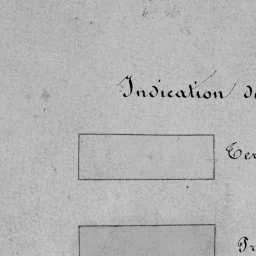 Indication de
Ter
Pr